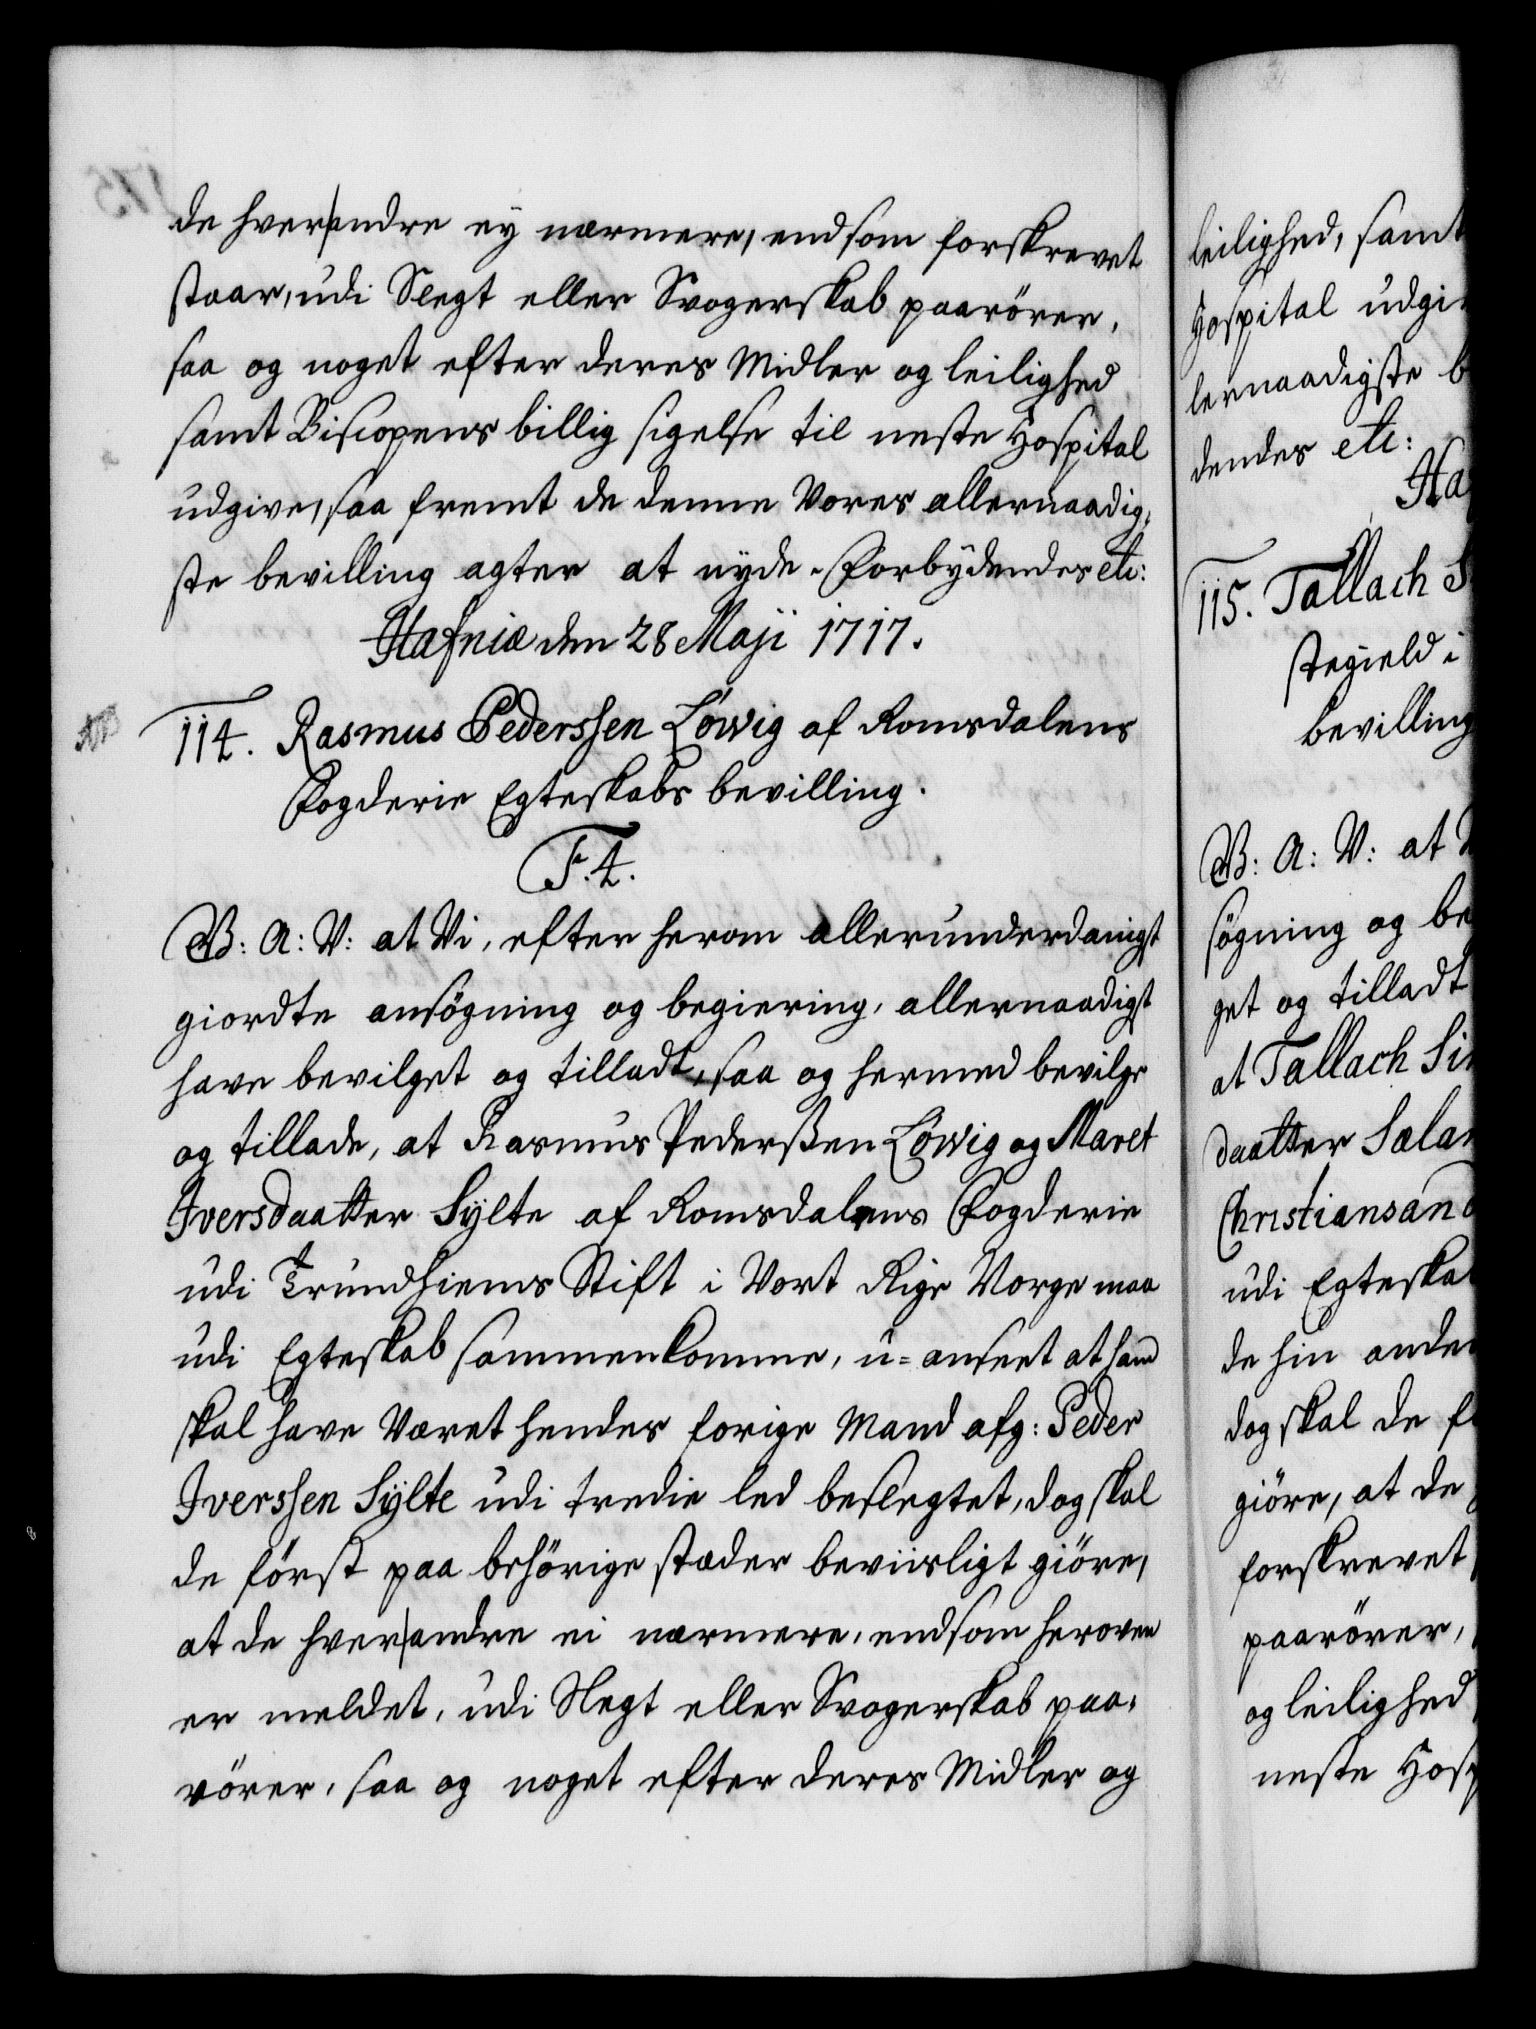 de hver andre ey nærmere, end som forskrevet
staar, udi Slegt eller Svogerskab paarörer,
saa og noget efter deres Midler og leilighed
samt Biscopens billig sigelse til neste Hospital
udgive, saa fremt de denne Vores allernaadig-
ste bevilling agter at nyde. Forbydendes etc:
Hafniæ den 28 Maji 1717.
114. Rasmus Pederssen Löwig af Romsdalens
Fogderie Egteskabs bevilling.
F. 4.
G. B: A: V: at Vi, efter herom allerunderdanigst
giordte ansögning og begiering, allernaadigst
have bevilget og tilladt, saa og hermed bevilge
og tillade, at Rasmus Pederßen Löwig og Maret
Iversdaatter Sylte af Romsdalens Fogderie
udi Trundhiems Stift i Vort Rige Norge maa
udi Egteskab sammenkomme, u-anseet at hand
skal have Været hendes forige Mand afg: Peder
Iverssen Sylte udi tredie led beslegtet, dog skal
de först paa behörige stæder beviisligt giöre,
at de hver andre ei nærmere, end som heroven
er meldet, udi Slegt eller Svogerskab paa-
rörer, saa og noget efter deres Midler og
leilighed, samt
Hospital udgi
lernaadigste b
dendes etc:
Ha
115. Tallach S
stegield i
bevilling
B: A: V: at
sögning og be
get og tilladt
at Tallach Si
daatter Salan
Christiansan
udi Egteska
de hin anden
dog skal de f
giöre, at de
forskrevet
paarörer,
og leilighed
neste Hosp